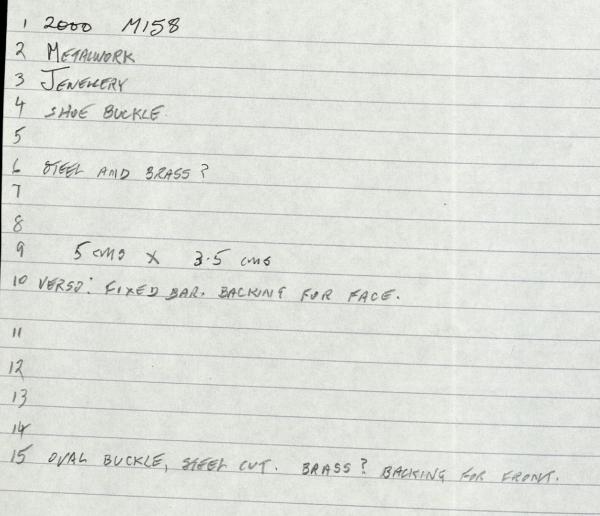 1 2000 M158
2 METALWORK
3 JEWELLERY
4 SHOE BUCKLE
5
6 STEEL AND BRASS?
7
8
9 5 cms x 3.5 cms
10 VERSO: FIXED BAR. BACKING FOR FACE.
11
12
13
14
15 OVAL BUCKLE, STEEL CUT. BRASS? BACKING FOR FRONT.